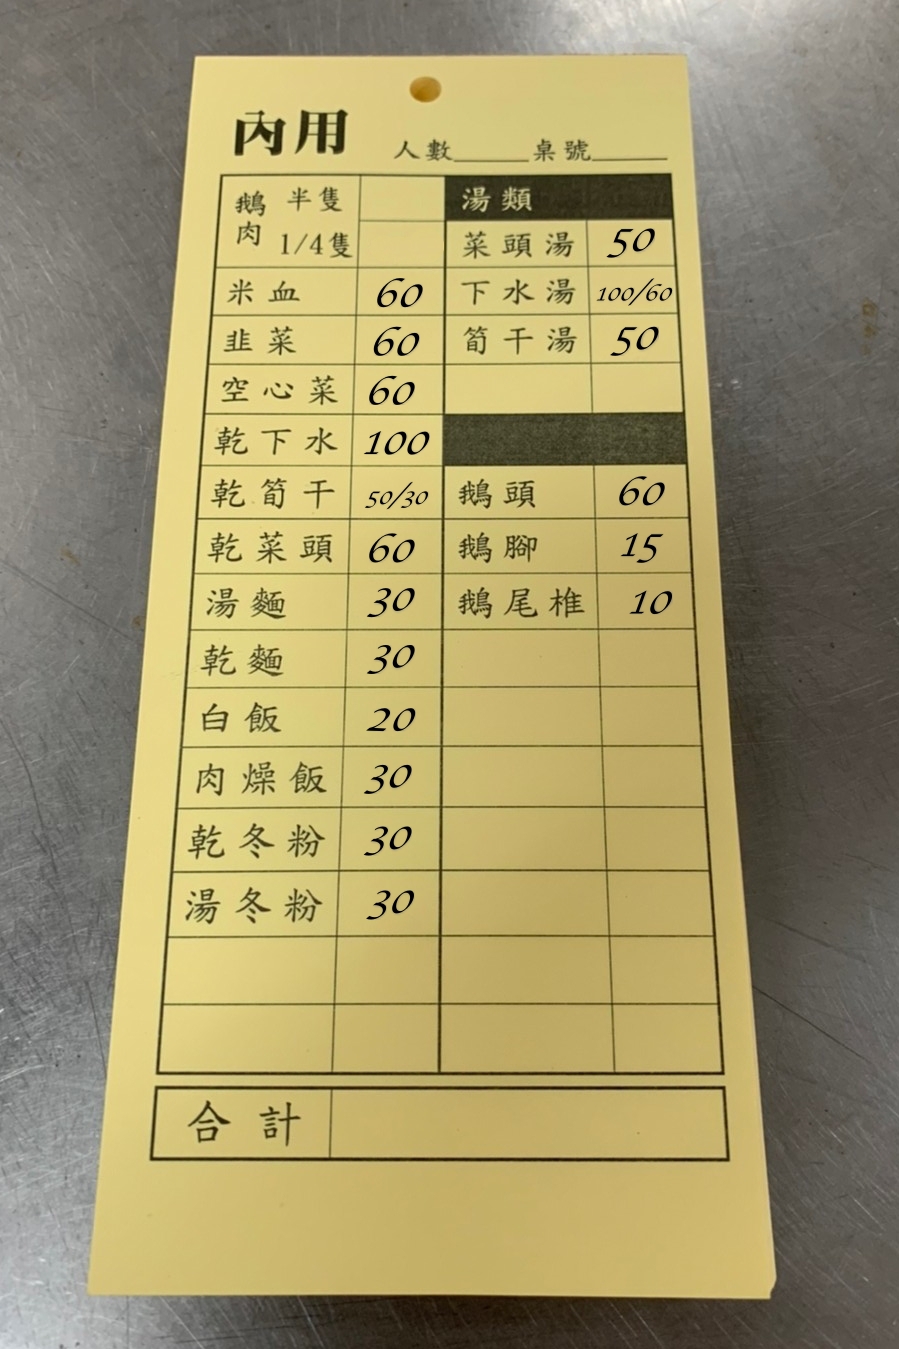 內用
人數______桌號______
鵝肉 半隻
1/4隻
米血 60
韭菜 60
空心菜 60
乾下水 100
乾筍干 50/30
乾菜頭 60
湯麵 30
乾麵 30
白飯 20
肉燥飯 30
乾冬粉 30
湯冬粉 30
湯類
菜頭湯 50
下水湯 100/60
筍干湯 50
鵝頭 60
鵝腳 15
鵝尾椎 10
合計